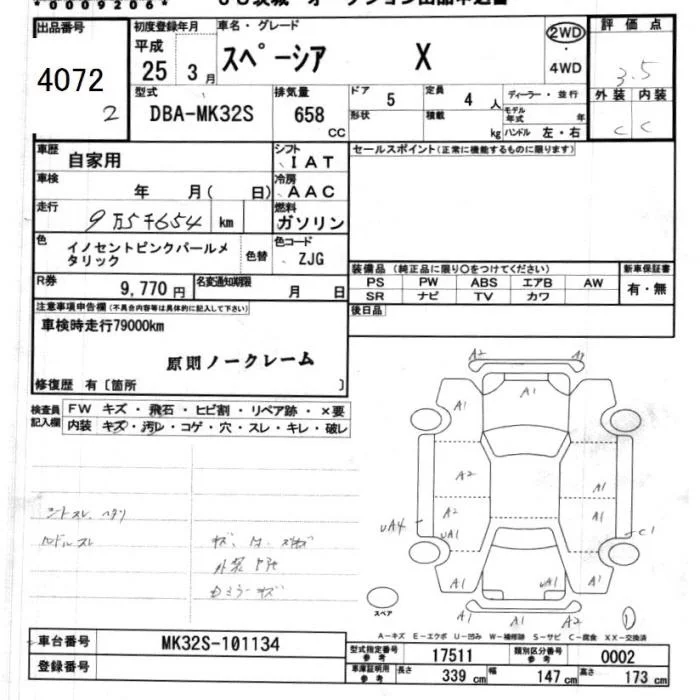 *0009206*
出品番号 初度登録年月 車名・グレード 2WD 評価点
4072 平成 25 3月 スペーシア X ・ 4WD 3.5
2 型式 排気量 ドア 5 定員 4人 ディーラー・並行 外装 内装
DBA-MK32S 658 CC 形状 積載 kg モデル年式 年 C C
ハンドル 左・右
車歴 自家用 シフト IAT セールスポイント(正常に機能するものに限ります)
車検 年 月( 日) 冷房 AAC
走行 9万5千654 km 燃料 ガソリン
色 イノセントピンクパールメタリック 色替 色コード ZJG
装備品 (純正品に限り○をつけてください) 新車保証書
PS PW ABS エアB AW 有・無
SR ナビ TV カワ
R券 9,770円 名変通知期限 月 日
後日品
注意事項申告欄(不具合内容等は具体的に記入して下さい)
車検時走行79000km
原則ノークレーム
修復歴 有〔箇所 〕
検査員記入欄 FW キズ・飛石・ヒビ割・リペア跡・×要
内装 キズ・汚レ・コゲ・穴・スレ・キレ・破レ
A2
A1 A1
A1
A2 A1
A2 A1
UA4 UA1 C1
A1 UA1 A1
A1 A1 A2 1
スペア
A-キズ E-エクボ U-凹み W-補修跡 S-サビ C-腐食 XX-交換済
車台番号 MK32S-101134
型式指定番号 参考 17511 類別区分番号 参考 0002
登録番号
車庫証明用 参考 長さ 339 cm 幅 147 cm 高さ 173 cm